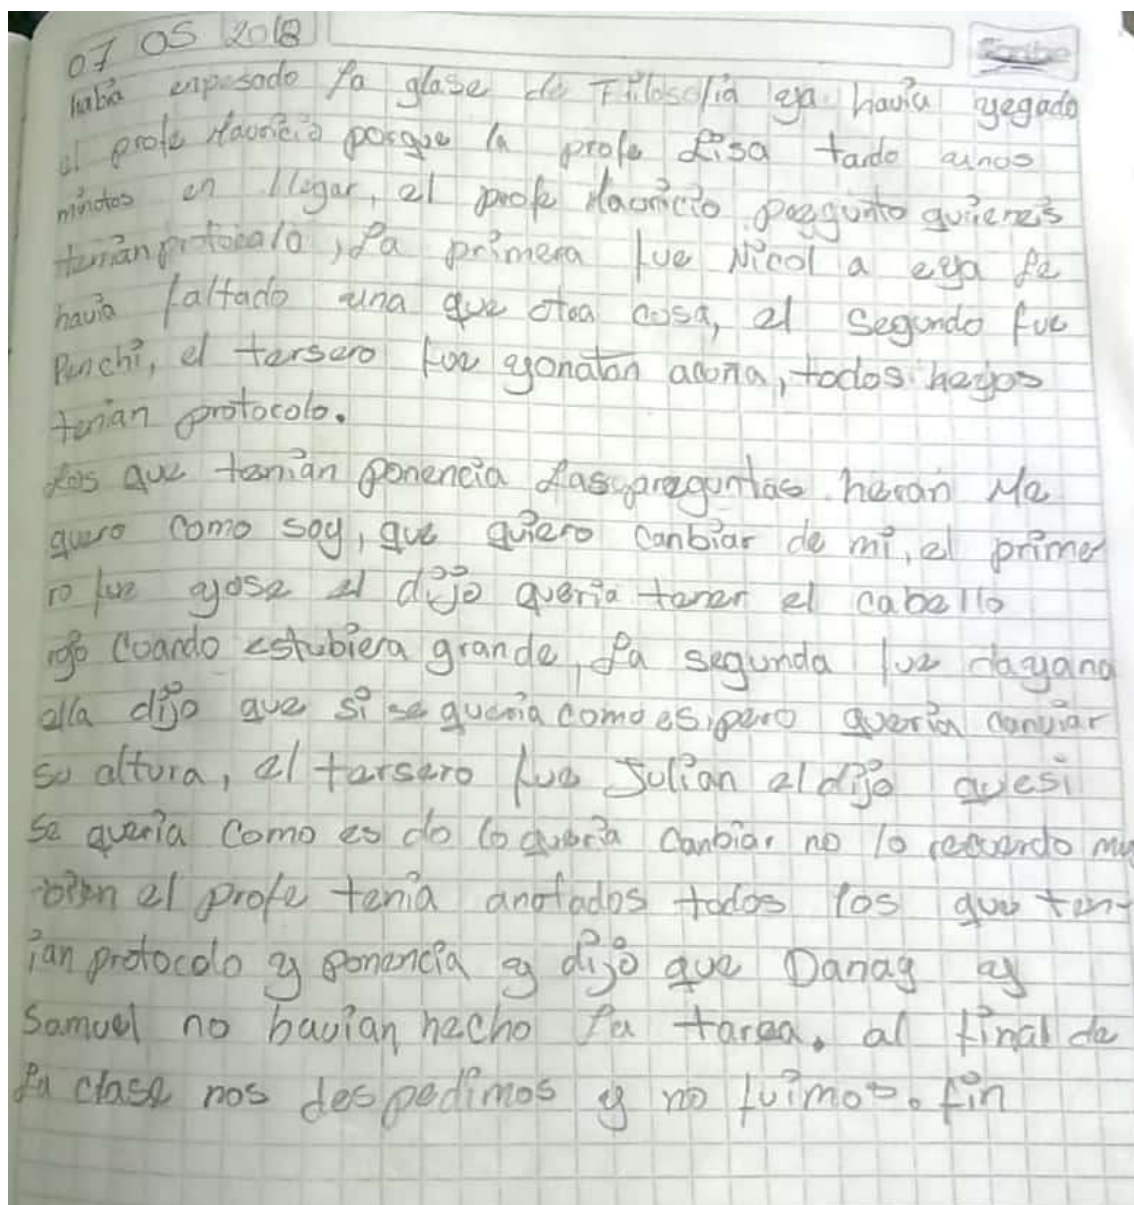 07 05 2018
Scribe
habia enpesado la glase de Filosofia ya havia yegado
el profe Mauricio porque la profe Lisa tardo unos
minotos en llegar, el profe Mauricio preguntó quienes
tenian protocolo, La primera fue Nicol a eya le
havia faltado una que otra cosa, el segundo fue
Panchi, el tersero fue yonatan acoña, todos heyos
tenian protocolo.
Los que tenian ponencia Las preguntas heran Me
quero como soy, que quiero canbiar de mi, el prime
ro fue yose el dijo queria tener el cabello
rojo cuando estubiera grande, La segunda fue dayana
ella dijo que si se queria como es, pero queria canviar
su altura, el tersero fue Julian el dijo quesi
se queria como es do lo queria canbiar no lo recuerdo muy
bien el profe tenia anotados todos los que ten-
ian protocolo y ponencia y dijo que Danay y
Samuel no havian hecho la tarea. al final de
La clase nos despedimos y no fuimos. fin